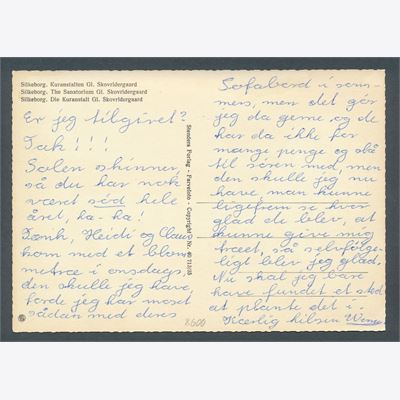 Silkeborg. Kuranstalten Gl. Skovridergaard
Silkeborg. The Sanatorium Gl. Skovridergaard
Silkeborg. Die Kuranstalt Gl. Skovridergaard
Er jeg tilgivet?
Tak!!!
Solen skinner,
så du har nok
været sød hele
året, ha-ha!
Tænk, Heidi og Claus
kom med et blom
metræ i onsdags,
den skulle jeg have,
fordi jeg har moset
sådan med deres
Stenders Forlag - Farvefoto - Copyright Nr.
Sofabord i som-
mers, men det gør
jeg da gerne, og de
har da ikke for
mange penge og så
til søren med, men
den skulle jeg nu
have, man kunne
ligefrem se hvor
glad de blev, at
kunne give mig
træet, så selvfølge-
ligt blev jeg glad.
Nu skal jeg bare
have fundet et sted
at plante det i.
Kærlig hilsen
8600